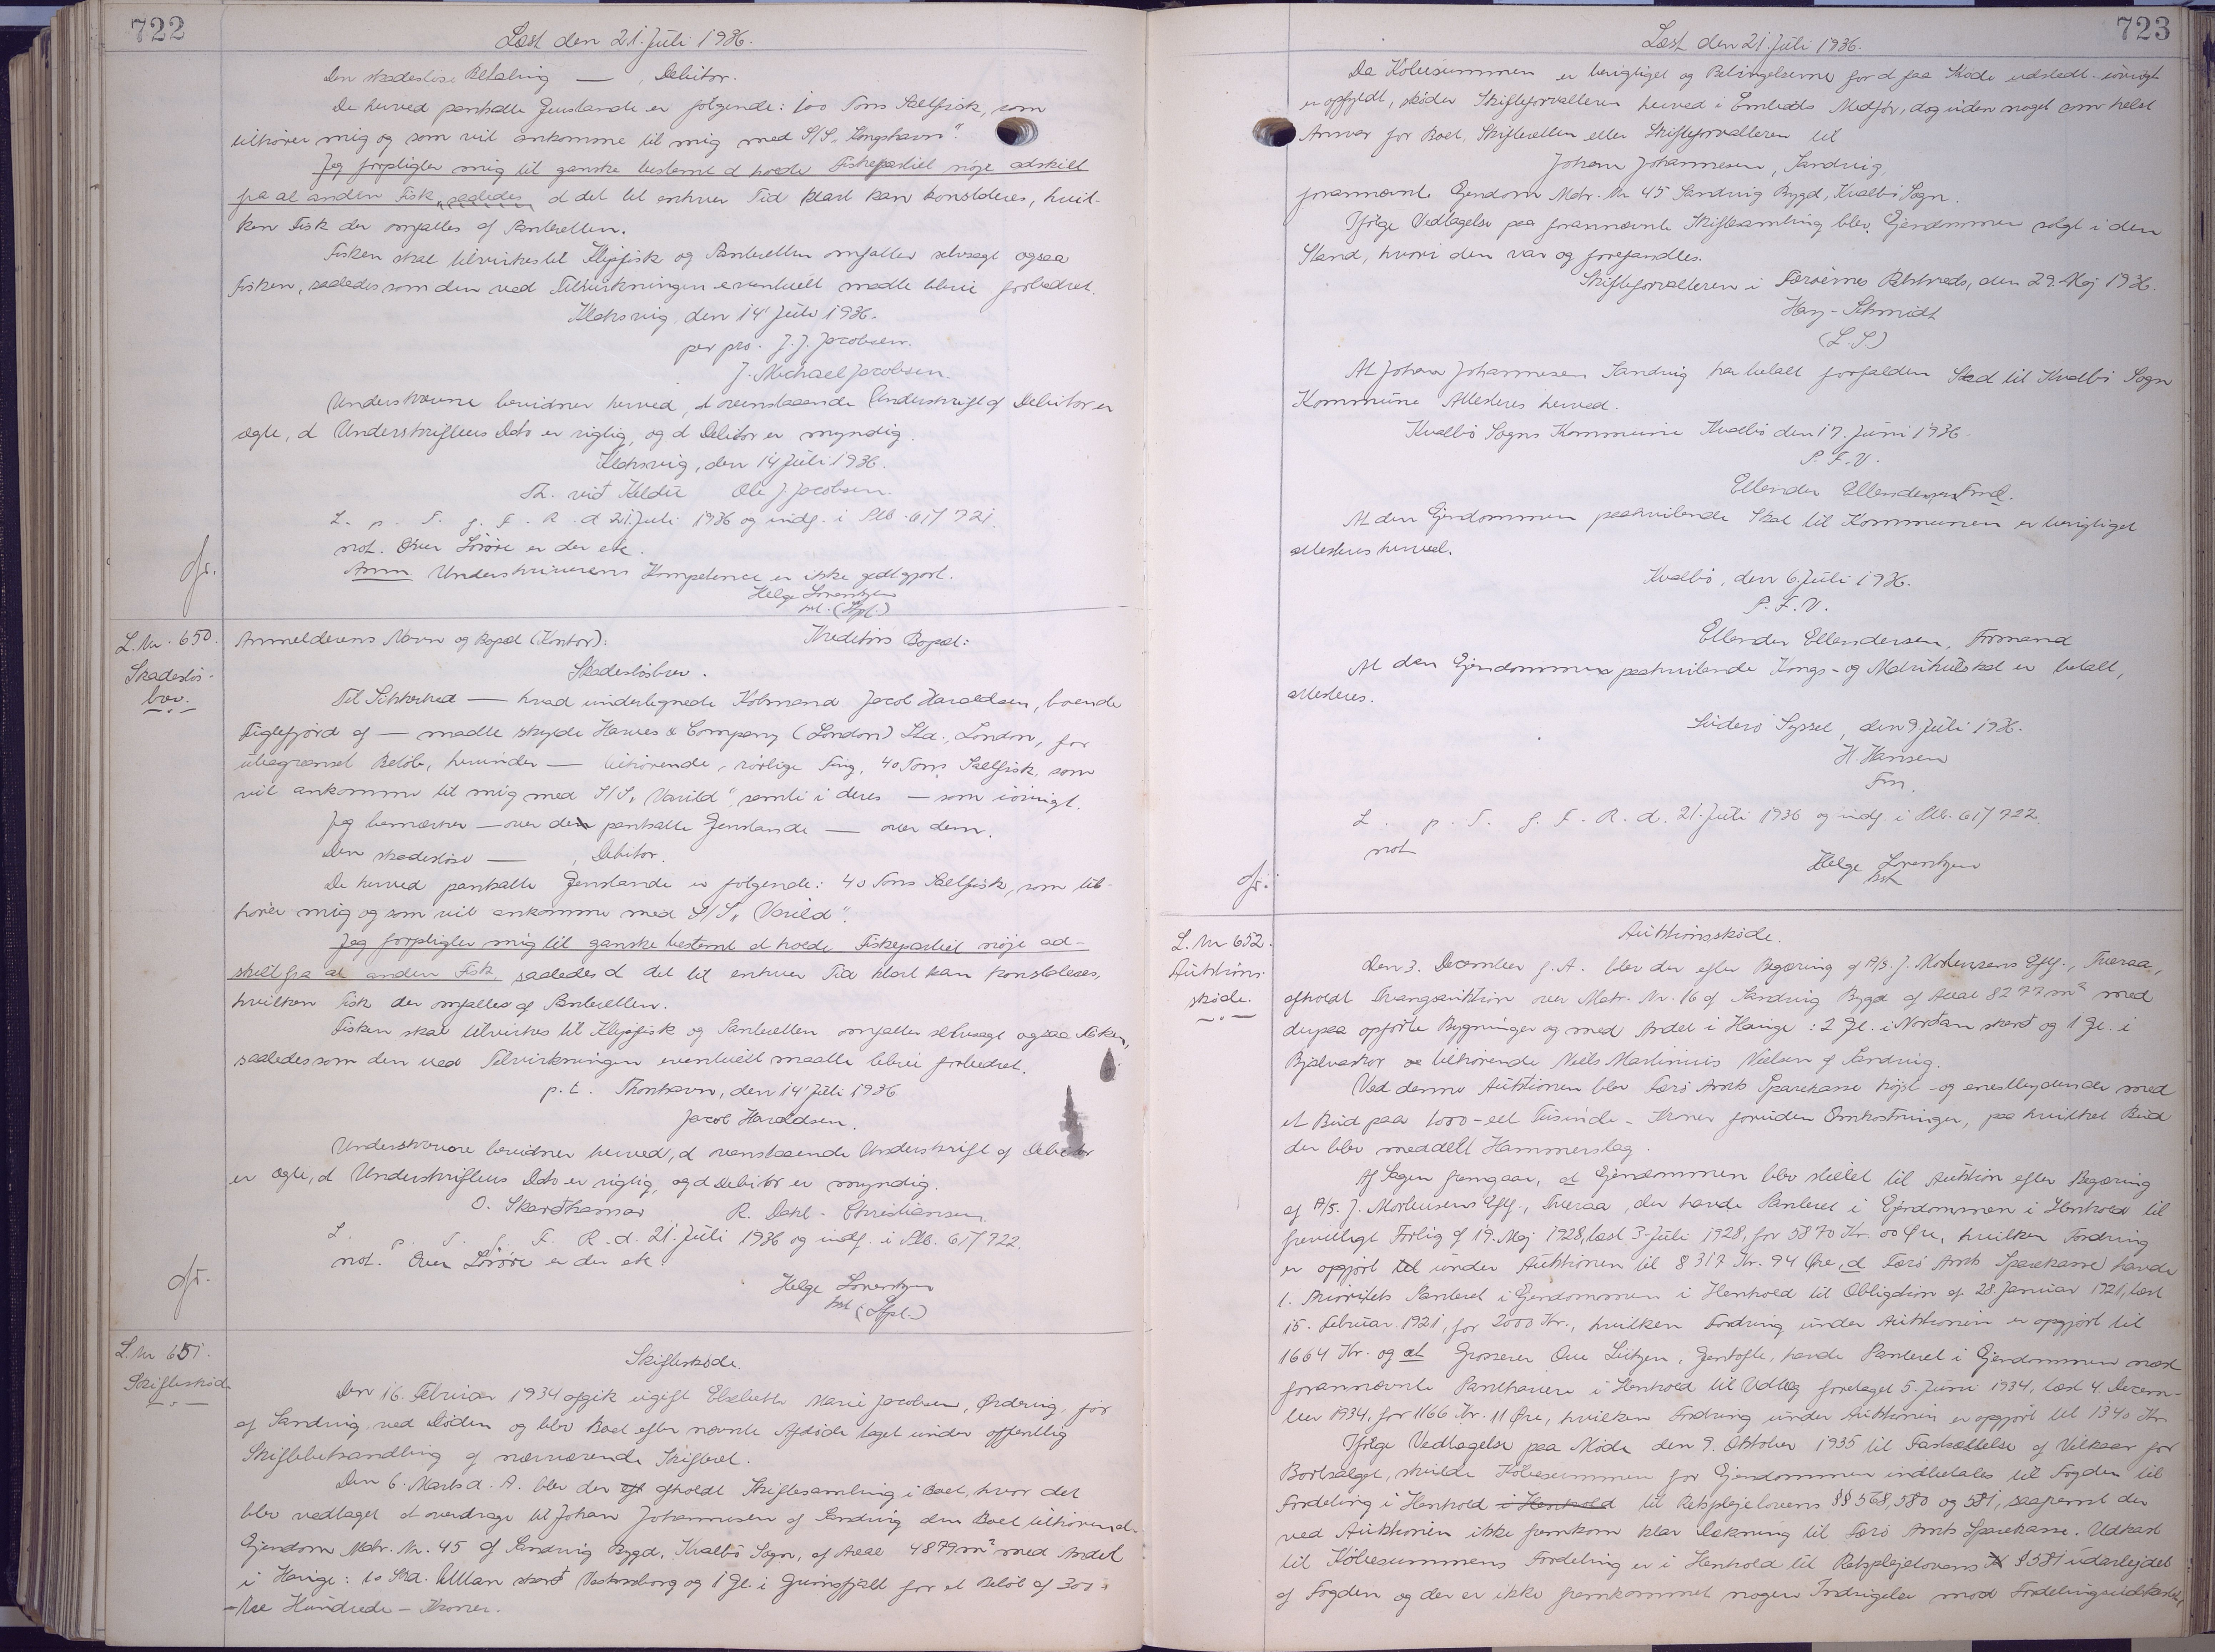 722
Læst den 21. Juli 1936.
Den skadesløse Betaling — , Debitor.
De herved panthatte Genstande er følgende: 100 Tons Saltfisk, som
tilhører mig og som vil ankomme til mig med S/S „Kongshavn".
Jeg forpligter mig til ganske bestemt at holde Fiskepartiet nøje adskilt
fra al anden Fisk, saaledes at det til enhver Tid klart kan konstateres, hvil-
ken Fisk der omfattes af Panteretten.
Fisken skal tilvirkes til Klipfisk og Panteretten omfatter selvsagt ogsaa
Fisken, saaledes som den ved Tilvirkningen eventuelt maatte blive forbedret.
Klaksvig, den 14' Juli 1936.
per pro. J. J. Jacobsen.
J. Michael Jacobsen.
Underskrevne bevidner herved, at ovenstaaende Underskrift af Debitor er
ægte, at Underskriftens Dato er rigtig, og at Debitor er myndig.
Klaksvig, den 14 Juli 1936.
Th. við Keldu Ole J. Jacobsen.
L. p. T. f. F. R. d 21. Juli 1936 og indf. i Plb. 61/721.
not. Over Løsøre er der etc.
Anm. Underskriverens Kompetence er ikke godtgjort.
Helge Lorentzen
fm. (Stpl.)
L. Nr. 650.
Skadesløs-
brev.
Anmelderens Navn og Bopæl (Kontor): Kreditors Bopæl:
Skadesløsbrev.
Til Sikkerhed — hvad undertegnede Købmand Jacob Haraldsen, boende
Fuglefjord af — maatte skylde Hawes & Company (London) Ltd., London, for
ubegrænset Beløb, herunder — tilhørende, rørlige Ting, 40 Tons Saltfisk, som
vil ankomme til mig med S/S „Varild" samt i deres — som iøvrigt.
Jeg bemærker — over den panthatte Genstande — over dem.
Den skadesløse — , Debitor.
De herved panthatte Genstande er følgende: 40 Tons Saltfisk, som til-
hører mig og som vil ankomme med S/S „Varild".
Jeg forpligter mig til ganske bestemt at holde Fiskepartiet nøje ad-
skilt fra al anden Fisk saaledes at det til enhver Tid klart kan konstateres,
hvilken Fisk der omfattes af Panteretten.
Fisken skal tilvirkes til Klipfisk og Panteretten omfatter selvsagt ogsaa Fisken,
saaledes som den ved Tilvirkningen eventuelt maatte blive forbedret.
p. t. Thorshavn, den 14' Juli 1936
Jacob Haraldsen.
Underskrevne bevidner herved, at ovenstaaende Underskrift af Debitor
er ægte, at Underskriftens Dato er rigtig, og at Debitor er myndig.
O. Skarðhamar R. Dahl-Christiansen.
L. p. T. f. F. R. d. 21. Juli 1936 og indf. i Plb. 61/722.
not. Over Løsøre er der etc
Helge Lorentzen
fm (Stpl.)
L. Nr 651.
Skifteskøde
Skifteskøde.
Den 16. Februar 1934 afgik ugift Elsebeth Marie Jacobsen, Ørdevig, før
af Sandvig ved Døden og blev Boet efter nævnte Afdøde taget under offentlig
Skiftebehandling af nærværende Skifteret.
Den 6. Marts d. A. blev der aft afholdt Skiftesamling i Boet, hvor det
blev vedtaget at overdrage til Johan Johannesen af Sandvig den Boet tilhørende
Ejendom Matr. Nr. 45 af Sandvig Bygd, Kvalbø Sogn, af Areal 4879 m² med Andel
i Hauge: 10 Skd. Uttan skorð Vestaraborg og 1 Gl. i Grimsfjall for et Beløb af 300.
- tre Hundrede - Kroner.
723
Læst den 21. Juli 1936.
Da Købesummen er berigtiget og Betingelserne for at faa Skøde udstedt iøvrigt
er opfyldt, skøder Skifteforvalteren herved i Embeds Medfør, dog uden noget som helst
Ansvar for Boet, Skifteretten eller Skifteforvalteren til
Johan Johannesen, Sandvig,
forannævnte Ejendom Matr. Nr 45 Sandvig Bygd, Kvalbø Sogn.
Ifølge Vedtagelse paa forannævnte Skiftesamling blev Ejendommen solgt i den
Stand, hvori den var og forefandtes.
Skifteforvalteren i Færøernes Retskreds, den 29. Maj 1936.
Hay-Schmidt
(L. S)
At Johan Johannesen Sandvig har betalt forfalden Skat til Kvalbø Sogn
Kommune Attesteres herved.
Kvalbø Sogns Kommune Kvalbø den 17. Juni 1936.
P. F. V.
Ellendur Ellendersen Fmd.
At den Ejendommen paahvilende Skat til Kommunen er berigtiget
attesteres herved.
Kvalbø, den 6. Juli 1936.
P. F. V.
Ellendur Ellendersen, Formand
At den Ejendommen paahvilende Kongs- og Matrikulskat er betalt,
attesteres.
Suderø Syssel, den 9 Juli 1936.
H. Hansen
Fm.
L. p. T. f. F. R. d. 21. Juli 1936 og indf. i Plb. 61/722.
not
Helge Lorentzen
fm
L. Nr 652.
Auktions-
skøde.
Auktionsskøde.
Den 3. December f. A. blev der efter Begæring af A/S. J. Mortensens Eftf., Tveraa,
afholdt Tvangsauktion over Matr. Nr. 16 af Sandvig Bygd af Areal 8277 m² med
derpaa opførte Bygninger og med Andel i Hauge: 2 Gl. i Norðan skorð og 1 Gl. i
tilhørende Niels Martinius Nielsen af Sandvig.
Ved denne Auktionen blev Færø Amts Sparekasse højst- og enestbydende med
et Bud paa 1000 - eet Tusinde - Kroner foruden Omkostninger, paa hvilket Bud
der blev meddelt Hammerslag.
Af Sagen fremgaar, at Ejendommen blev stillet til Auktion efter Begæring
af A/S. J. Mortensens Eftf., Tveraa, der havde Panteret i Ejendommen i Henhold til
frivilligt Forlig af 19. Maj 1928, læst 3. Juli 1928, for 5870 Kr. 00 Øre, hvilken Fordring
er opgjort til under Auktionen til 8317 Kr. 94 Øre, at Færø Amts Sparekasse havde
1. Prioritets Panteret i Ejendommen i Henhold til Obligation af 28. Januar 1921, læst
15. Februar 1921, for 2000 Kr., hvilken Fordring under Auktionen er opgjort til
1664 Kr. og at Grosserer Ove Lützen, Gentofte, havde Panteret i Ejendommen næst
forannævnte Panthavere i Henhold til Udlæg foretaget 5. Juni 1934, læst 4. Decem-
ber 1934, for 1166 Kr. 11 Øre, hvilken Fordring under Auktionen er opgjort til 1340 Kr
Ifølge Vedtagelse paa Møde den 9. Oktober 1935 til Fastsættelse af Vilkaar for
Bortsalget, skulde Købesummen for Ejendommen indbetales til Fogden til
Fordeling i Henhold i Henhold til Retsplejelovens §§ 568, 580 og 581, saafremt der
ved Auktionen ikke fremkom klar Dækning til Færø Amts Sparekasse. Udkast
til Købesummens Fordeling er i Henhold til Retsplejelovens § 581 udarbejdet
af Fogden og der er ikke fremkommet nogen Indsigelse mod Fordelingsudkastet